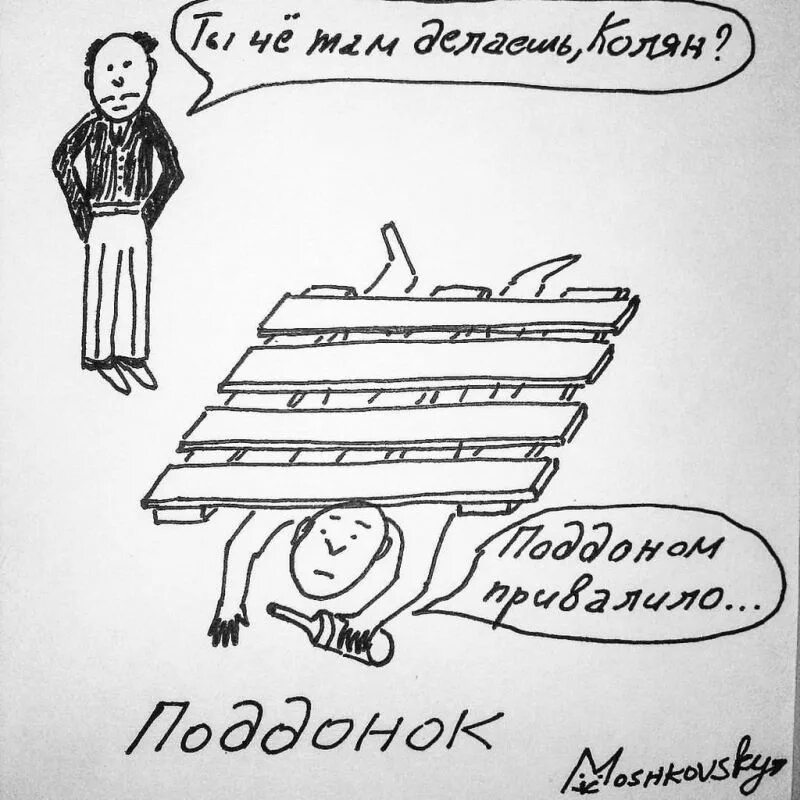 Ты чё там делаешь, Колян?
Поддоном
привалило...
Поддонок
Moshkovsky